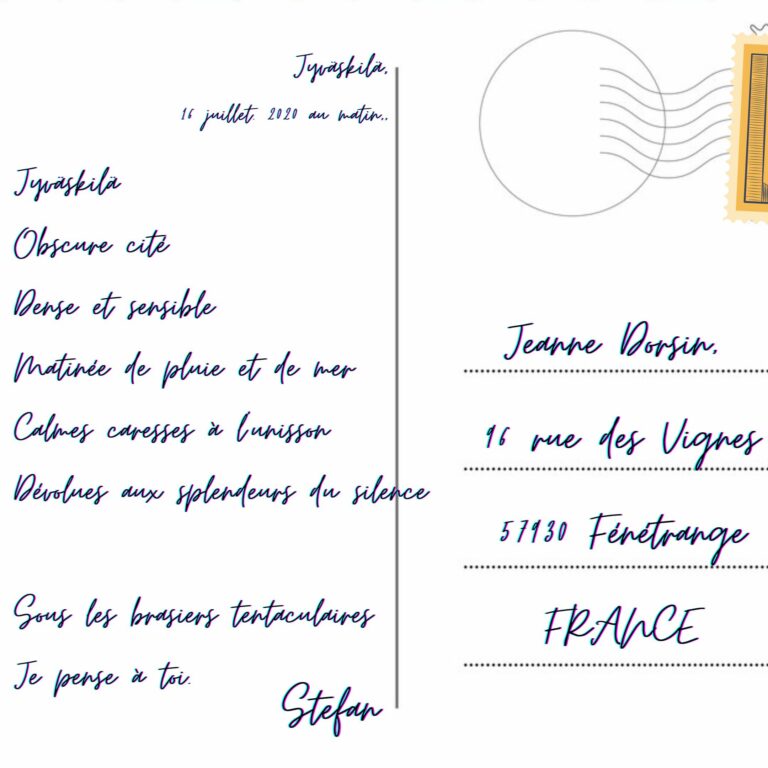 Jyväskilä,
16 juillet. 2020 au matin,.
Jyväskilä
Obscure cité
Dense et sensible
Matinée de pluie et de mer
Calmes caresses à l'unisson
Dévolues aux splendeurs du silence
Sous les brasiers tentaculaires
Je pense à toi.
Stefan
Jeanne Dorsin,
96 rue des Vignes
57930 Fénétrange
FRANCE